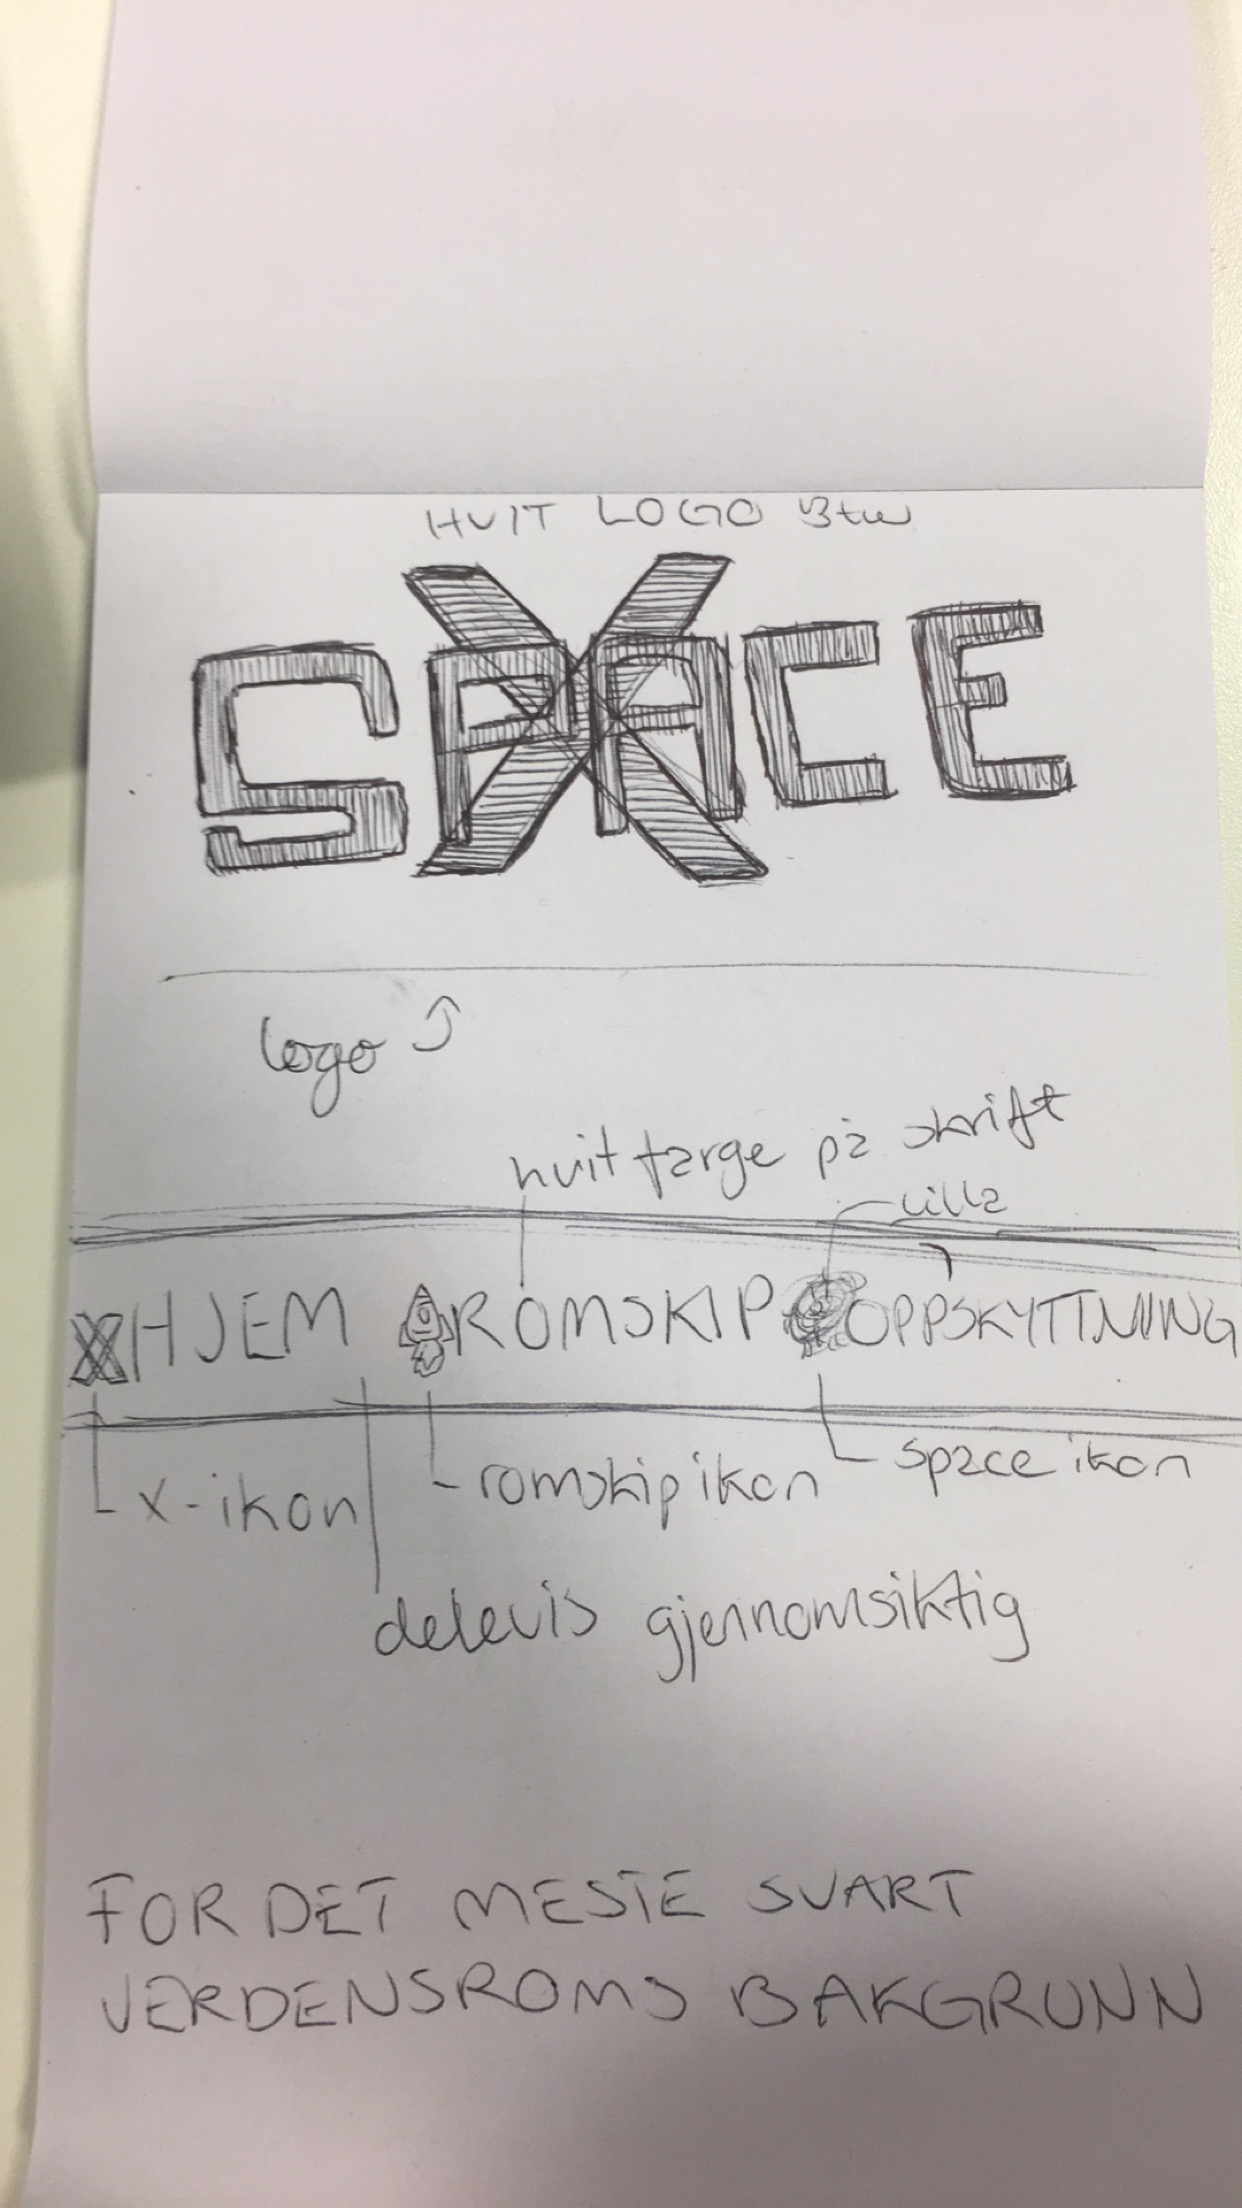 HVIT LOGO Btw
SPACE
X
logo
hvit farge på skrift
lilla
HJEM ROMSKIP OPPSKYTTNING
x-ikon
romskip ikon
space ikon
delevis gjennomsiktig
FOR DET MESTE SVART
VERDENSROMS BAKGRUNN